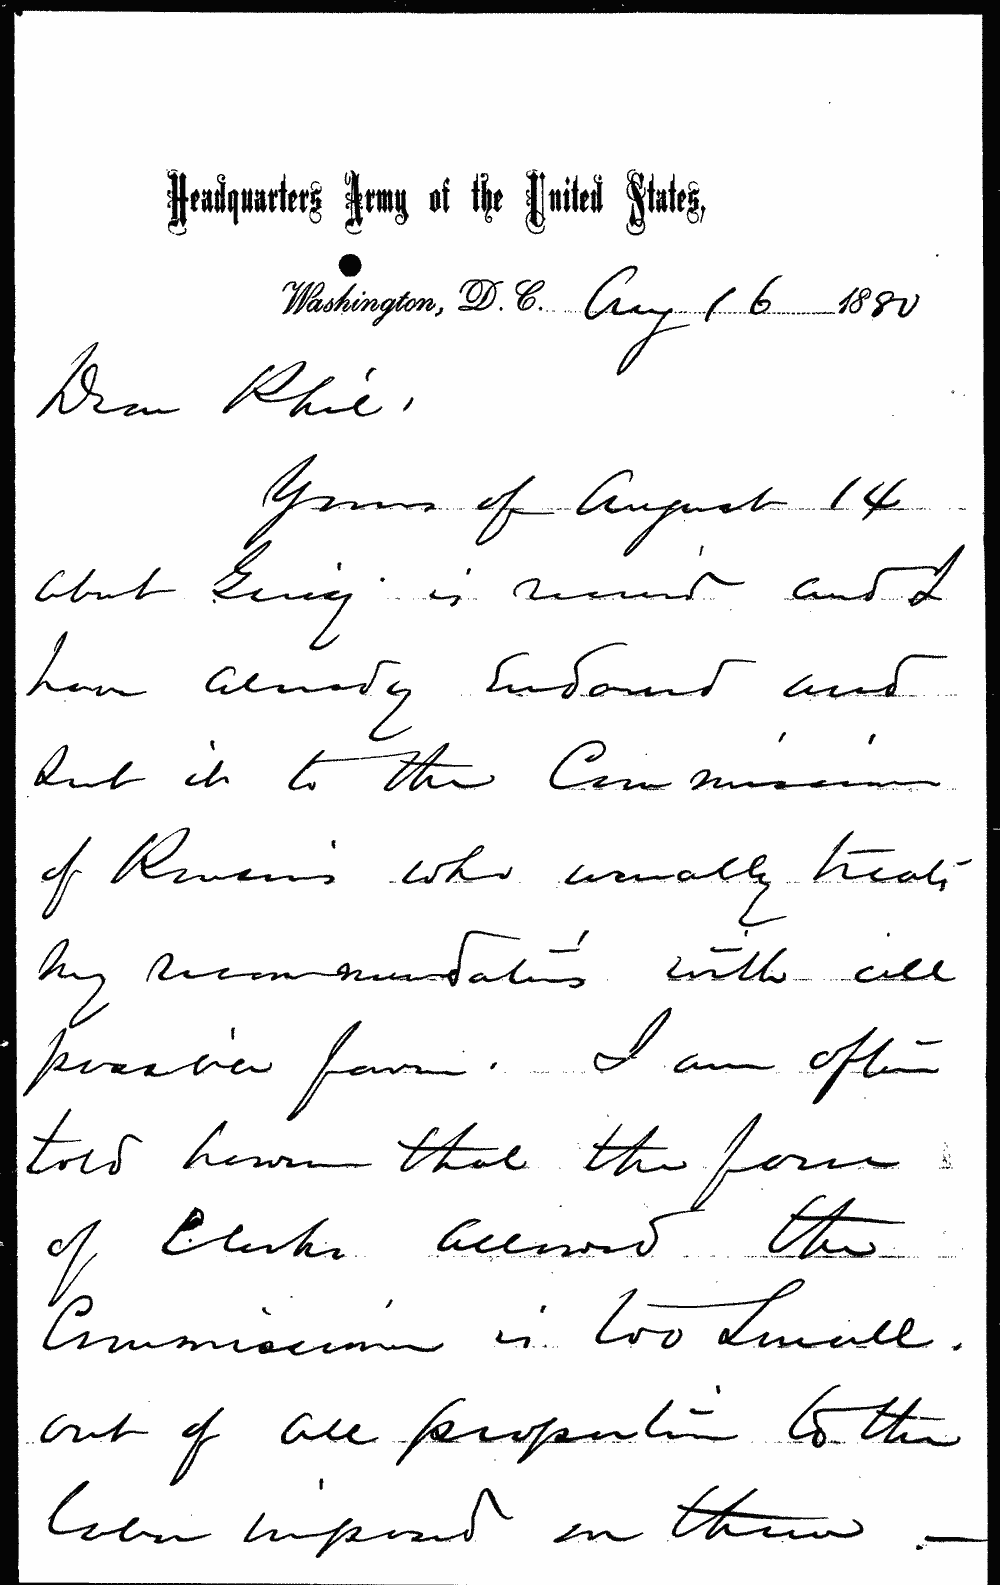 Headquarters Army of the United States,
Washington, D. C. Aug 16 1880
Dear Phil,
Yours of August 14
about is received and I
have already Endorsed and
sent it to the Commissioner
of Pensions who usually treats
my recommendations with all
possible favor. I am often
told however that the force
of Clerks allowed the
Commissioner is too Small.
out of all proportion to the
labor imposed on them —